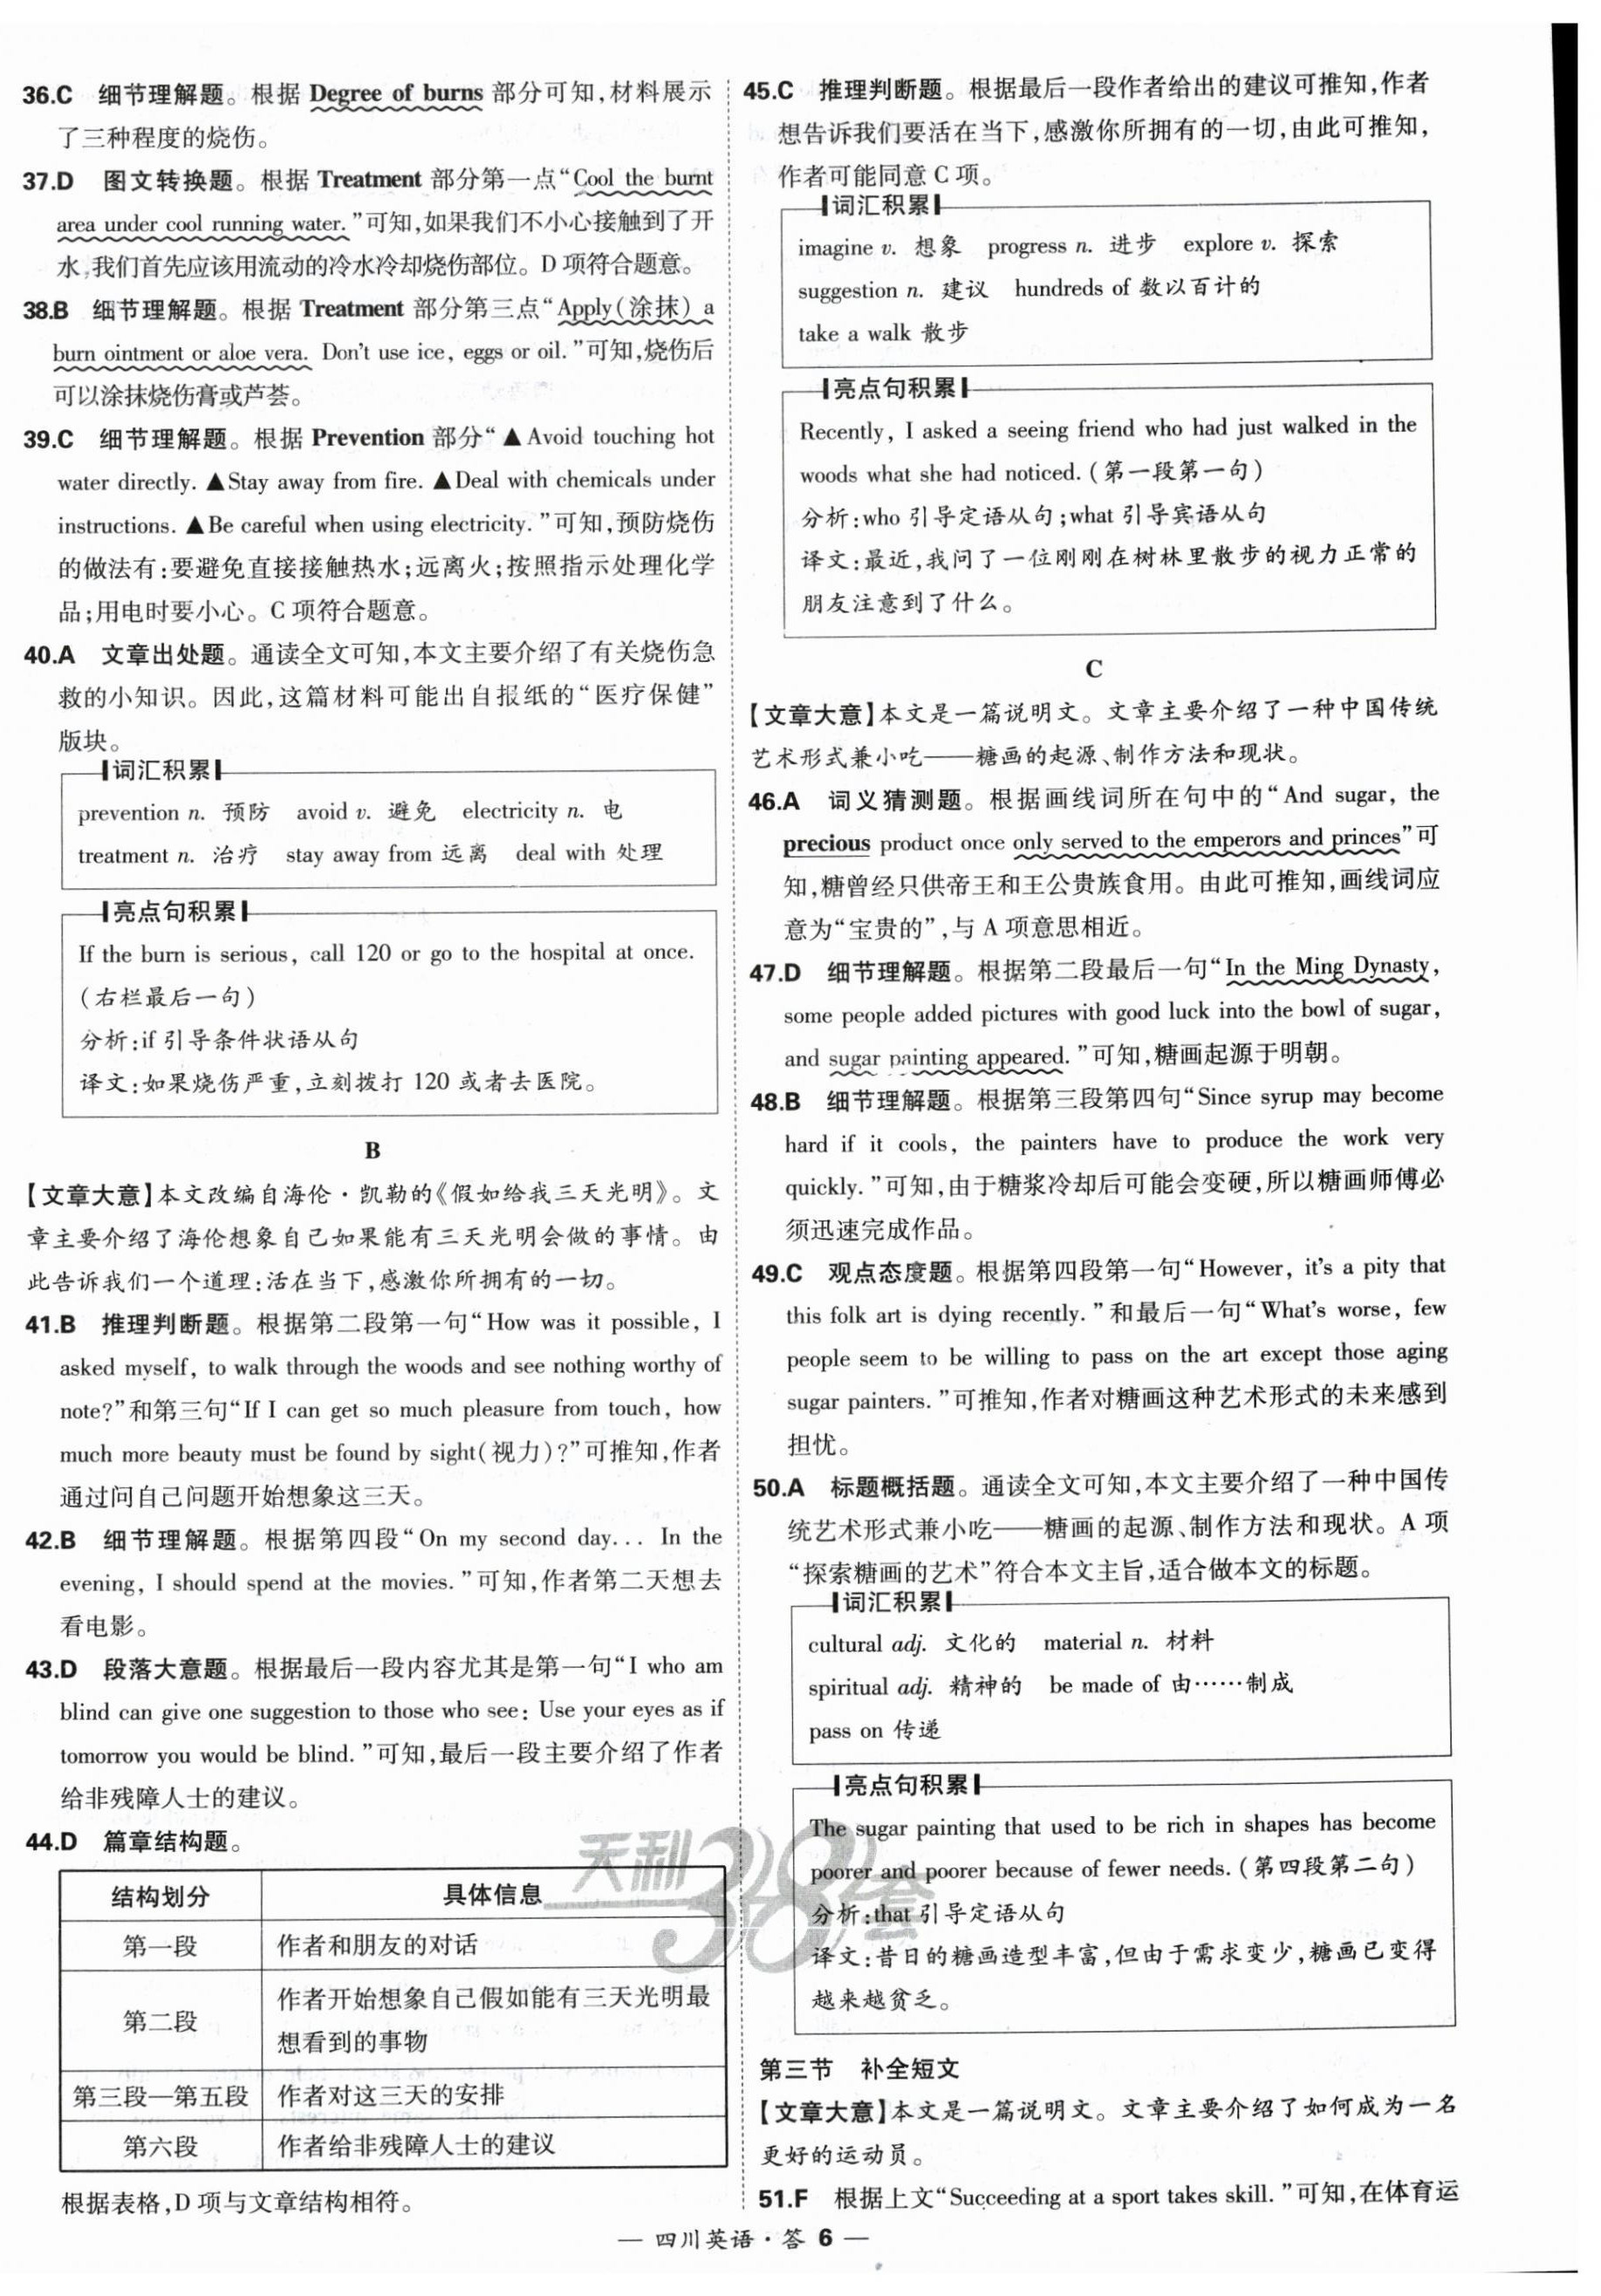 36.C 细节理解题。根据 Degree of burns 部分可知,材料展示
了三种程度的烧伤。
37.D 图文转换题。根据 Treatment 部分第一点“Cool the burnt
area under cool running water.”可知,如果我们不小心接触到了开
水,我们首先应该用流动的冷水冷却烧伤部位。D 项符合题意。
38.B 细节理解题。根据 Treatment 部分第三点“Apply(涂抹) a
burn ointment or aloe vera. Don't use ice, eggs or oil.”可知,烧伤后
可以涂抹烧伤膏或芦荟。
39.C 细节理解题。根据 Prevention 部分“▲Avoid touching hot
water directly. ▲Stay away from fire. ▲Deal with chemicals under
instructions. ▲Be careful when using electricity.”可知,预防烧伤
的做法有:要避免直接接触热水;远离火;按照指示处理化学
品;用电时要小心。C 项符合题意。
40.A 文章出处题。通读全文可知,本文主要介绍了有关烧伤急
救的小知识。因此,这篇材料可能出自报纸的“医疗保健”
版块。
词汇积累
prevention n. 预防 avoid v. 避免 electricity n. 电
treatment n. 治疗 stay away from 远离 deal with 处理
亮点句积累
If the burn is serious, call 120 or go to the hospital at once.
(右栏最后一句)
分析:if 引导条件状语从句
译文:如果烧伤严重,立刻拨打 120 或者去医院。
B
【文章大意】本文改编自海伦·凯勒的《假如给我三天光明》。文
章主要介绍了海伦想象自己如果能有三天光明会做的事情。由
此告诉我们一个道理:活在当下,感激你所拥有的一切。
41.B 推理判断题。根据第二段第一句“How was it possible, I
asked myself, to walk through the woods and see nothing worthy of
note?”和第三句“If I can get so much pleasure from touch, how
much more beauty must be found by sight(视力)?”可推知,作者
通过问自己问题开始想象这三天。
42.B 细节理解题。根据第四段“On my second day... In the
evening, I should spend at the movies.”可知,作者第二天想去
看电影。
43.D 段落大意题。根据最后一段内容尤其是第一句“I who am
blind can give one suggestion to those who see: Use your eyes as if
tomorrow you would be blind.”可知,最后一段主要介绍了作者
给非残障人士的建议。
44.D 篇章结构题。
结构划分 具体信息
第一段 作者和朋友的对话
第二段 作者开始想象自己假如能有三天光明最
想看到的事物
第三段—第五段 作者对这三天的安排
第六段 作者给非残障人士的建议
根据表格,D 项与文章结构相符。
45.C 推理判断题。根据最后一段作者给出的建议可推知,作者
想告诉我们要活在当下,感激你所拥有的一切,由此可推知,
作者可能同意 C 项。
词汇积累
imagine v. 想象 progress n. 进步 explore v. 探索
suggestion n. 建议 hundreds of 数以百计的
take a walk 散步
亮点句积累
Recently, I asked a seeing friend who had just walked in the
woods what she had noticed. (第一段第一句)
分析:who 引导定语从句;what 引导宾语从句
译文:最近,我问了一位刚刚在树林里散步的视力正常的
朋友注意到了什么。
C
【文章大意】本文是一篇说明文。文章主要介绍了一种中国传统
艺术形式兼小吃——糖画的起源、制作方法和现状。
46.A 词义猜测题。根据画线词所在句中的“And sugar, the
precious product once only served to the emperors and princes”可
知,糖曾经只供帝王和王公贵族食用。由此可推知,画线词应
意为“宝贵的”,与 A 项意思相近。
47.D 细节理解题。根据第二段最后一句“In the Ming Dynasty,
some people added pictures with good luck into the bowl of sugar,
and sugar painting appeared.”可知,糖画起源于明朝。
48.B 细节理解题。根据第三段第四句“Since syrup may become
hard if it cools, the painters have to produce the work very
quickly.”可知,由于糖浆冷却后可能会变硬,所以糖画师傅必
须迅速完成作品。
49.C 观点态度题。根据第四段第一句“However, it's a pity that
this folk art is dying recently.”和最后一句“What's worse, few
people seem to be willing to pass on the art except those aging
sugar painters.”可推知,作者对糖画这种艺术形式的未来感到
担忧。
50.A 标题概括题。通读全文可知,本文主要介绍了一种中国传
统艺术形式兼小吃——糖画的起源、制作方法和现状。A 项
“探索糖画的艺术”符合本文主旨,适合做本文的标题。
词汇积累
cultural adj. 文化的 material n. 材料
spiritual adj. 精神的 be made of 由……制成
pass on 传递
亮点句积累
The sugar painting that used to be rich in shapes has become
poorer and poorer because of fewer needs. (第四段第二句)
分析:that 引导定语从句
译文:昔日的糖画造型丰富,但由于需求变少,糖画已变得
越来越贫乏。
第三节 补全短文
【文章大意】本文是一篇说明文。文章主要介绍了如何成为一名
更好的运动员。
51.F 根据上文“Succeeding at a sport takes skill.”可知,在体育运
天利38套
— 四川英语·答 6 —